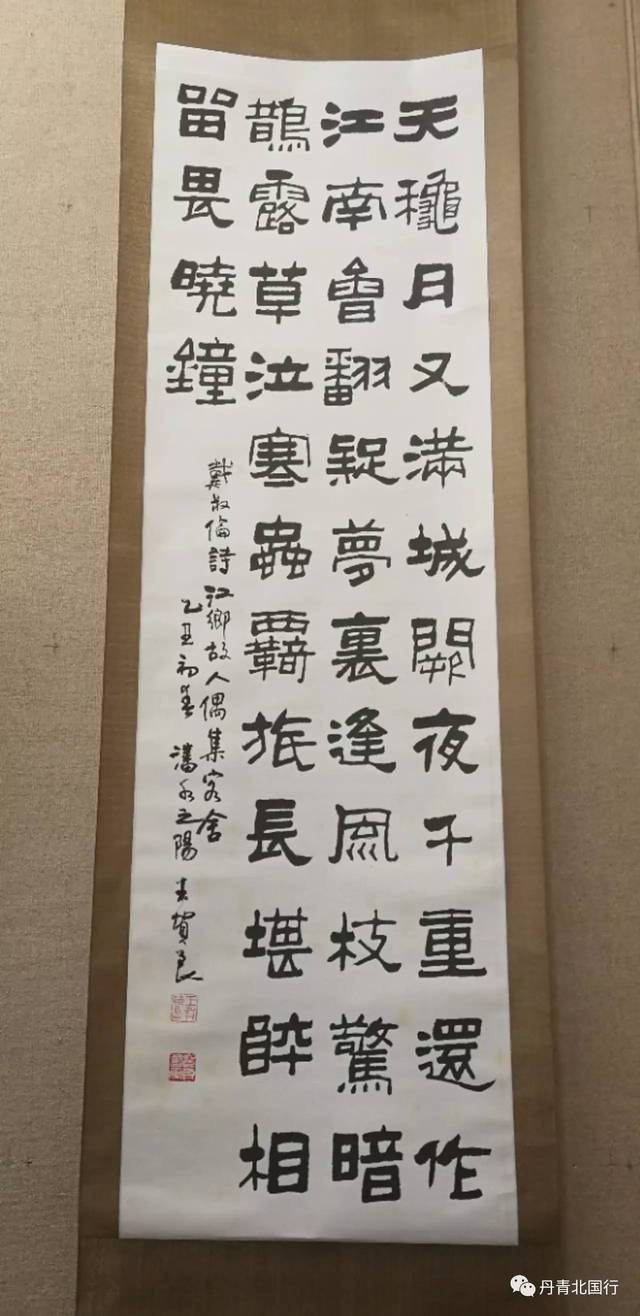 天龝月又滿城闕夜千重還作
江南會翻疑夢裏逢風枝驚暗
鵲露草泣寒蟲覉旅長堪醉相
留畏曉鐘
戴叔倫詩江鄉故人偶集客舍
乙丑初春瀋水之陽賀良
丹青北国行